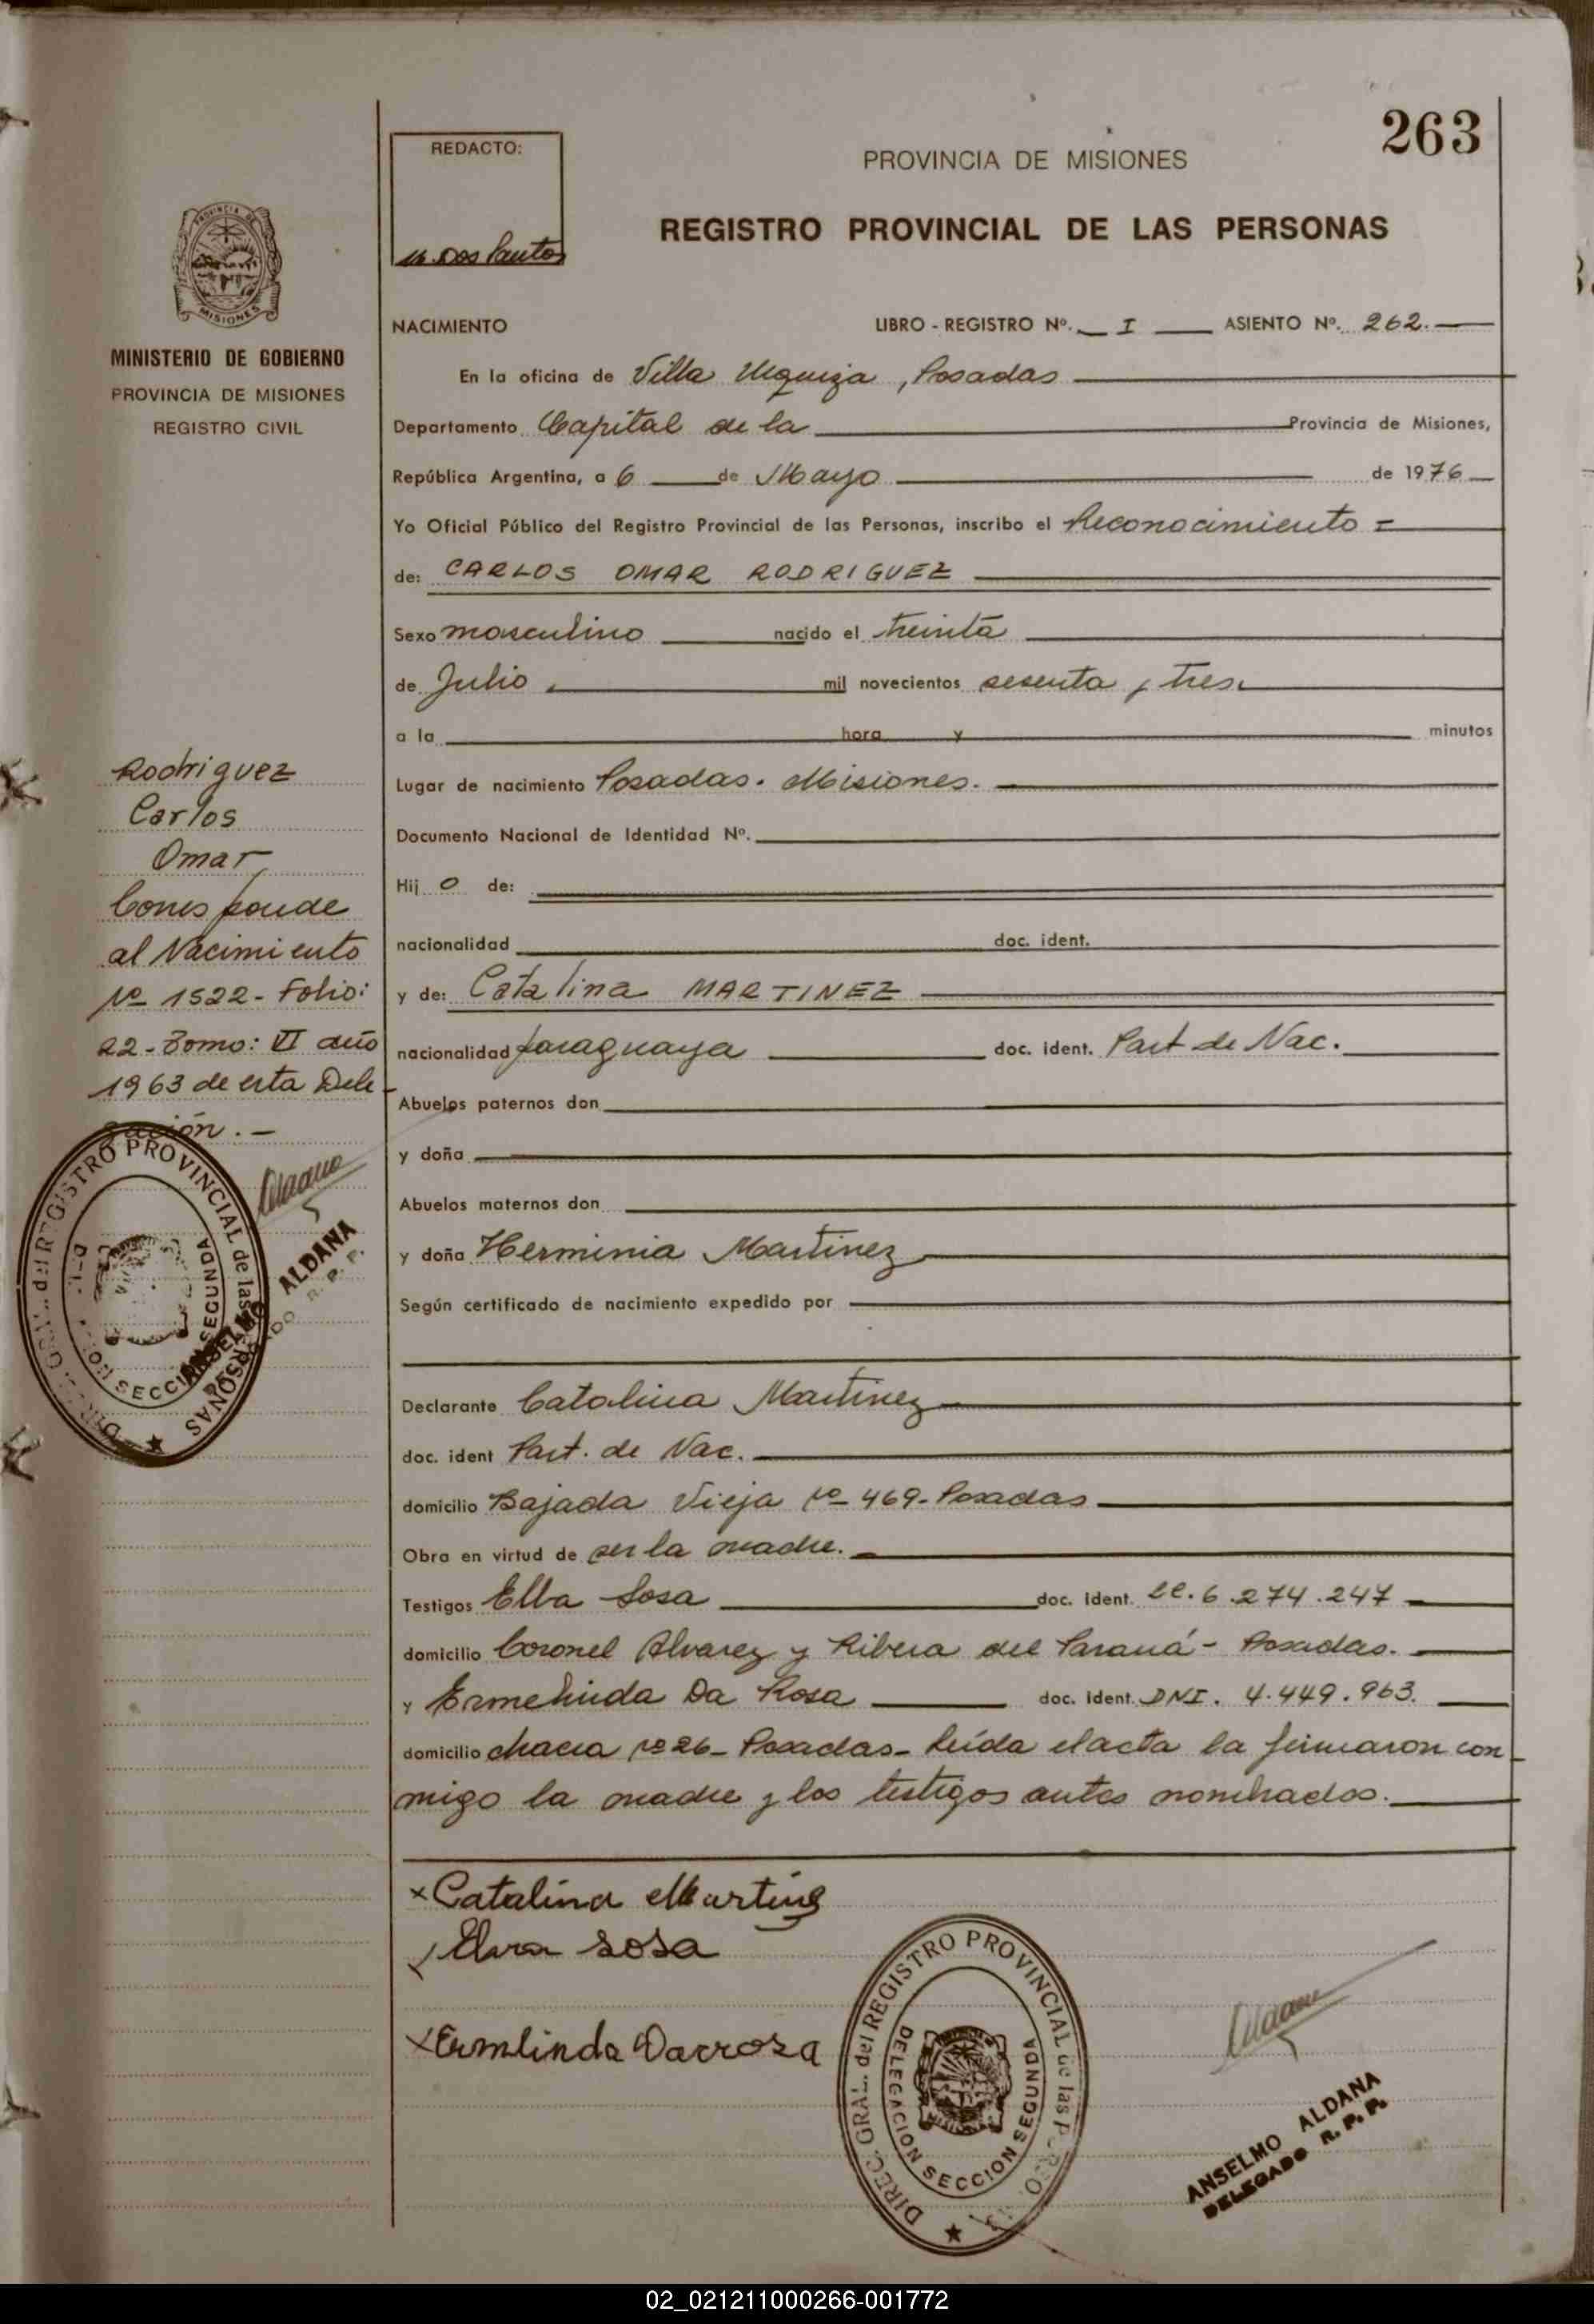 263
REDACTO:
M. Dos Santos
PROVINCIA DE MISIONES
REGISTRO PROVINCIAL DE LAS PERSONAS
PROVINCIA DE
MISIONES
MINISTERIO DE GOBIERNO
PROVINCIA DE MISIONES
REGISTRO CIVIL
NACIMIENTO LIBRO - REGISTRO Nº. I ASIENTO Nº. 262.
En la oficina de Villa Urquiza, Posadas
Departamento Capital de la Provincia de Misiones,
República Argentina, a 6 de Mayo de 1976
Yo Oficial Público del Registro Provincial de las Personas, inscribo el Reconocimiento =
de: CARLOS OMAR RODRIGUEZ
Sexo masculino nacido el treinta
de Julio. mil novecientos sesenta y tres.
a la hora y minutos
Lugar de nacimiento Posadas. Misiones.
Documento Nacional de Identidad Nº.
Hij o de:
nacionalidad doc. ident.
y de: Catalina MARTINEZ
nacionalidad paraguaya doc. ident. Part de Nac.
Abuelos paternos don
y doña
Abuelos maternos don
y doña Herminia Martinez
Según certificado de nacimiento expedido por
Declarante Catalina Martinez
doc. ident Part. de Nac.
domicilio Bajada Vieja Nº 469- Posadas
Obra en virtud de ser la madre.
Testigos Elba Sosa doc. ident. LC. 6.274.247
domicilio Coronel Alvarez y Ribera del Paraná - Posadas.
y Ermelinda Da Rosa doc. ident. DNI. 4.449.963.
domicilio chacra Nº 26- Posadas- Leída el acta la firmaron con
migo la madre y los testigos antes nombrados.
Rodriguez
Carlos
Omar
Corresponde
al Nacimiento
Nº 1522- Folio:
22- Tomo: VI año
1963 de esta Dele
gación. -
DIREC. GRAL. del REGISTRO PROVINCIAL de las PERSONAS
SECCION SEGUNDA
ANSELMO ALDANA
DELEGADO R. P. P.
x Catalina Martinez
Sosa
x Ermlinda Darrosa
DIREC. GRAL. del REGISTRO PROVINCIAL de las PERSONAS
DELEGACION SECCION SEGUNDA
ANSELMO ALDANA
DELEGADO R. P. P.
02_021211000266-001772